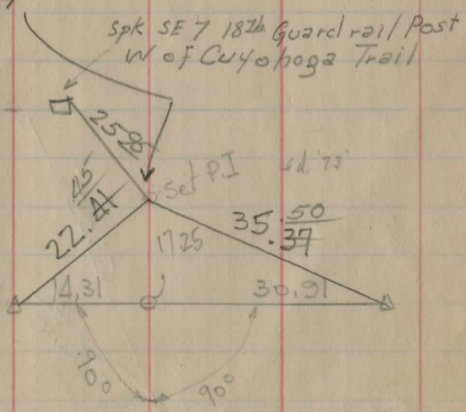 Spk SE 7 18th Guard rail Post
W of Cuyohoga Trail
25 96
Set P.I
'73
45
22.41
35.50
37
17.25
14.31
30.91
90°
90°